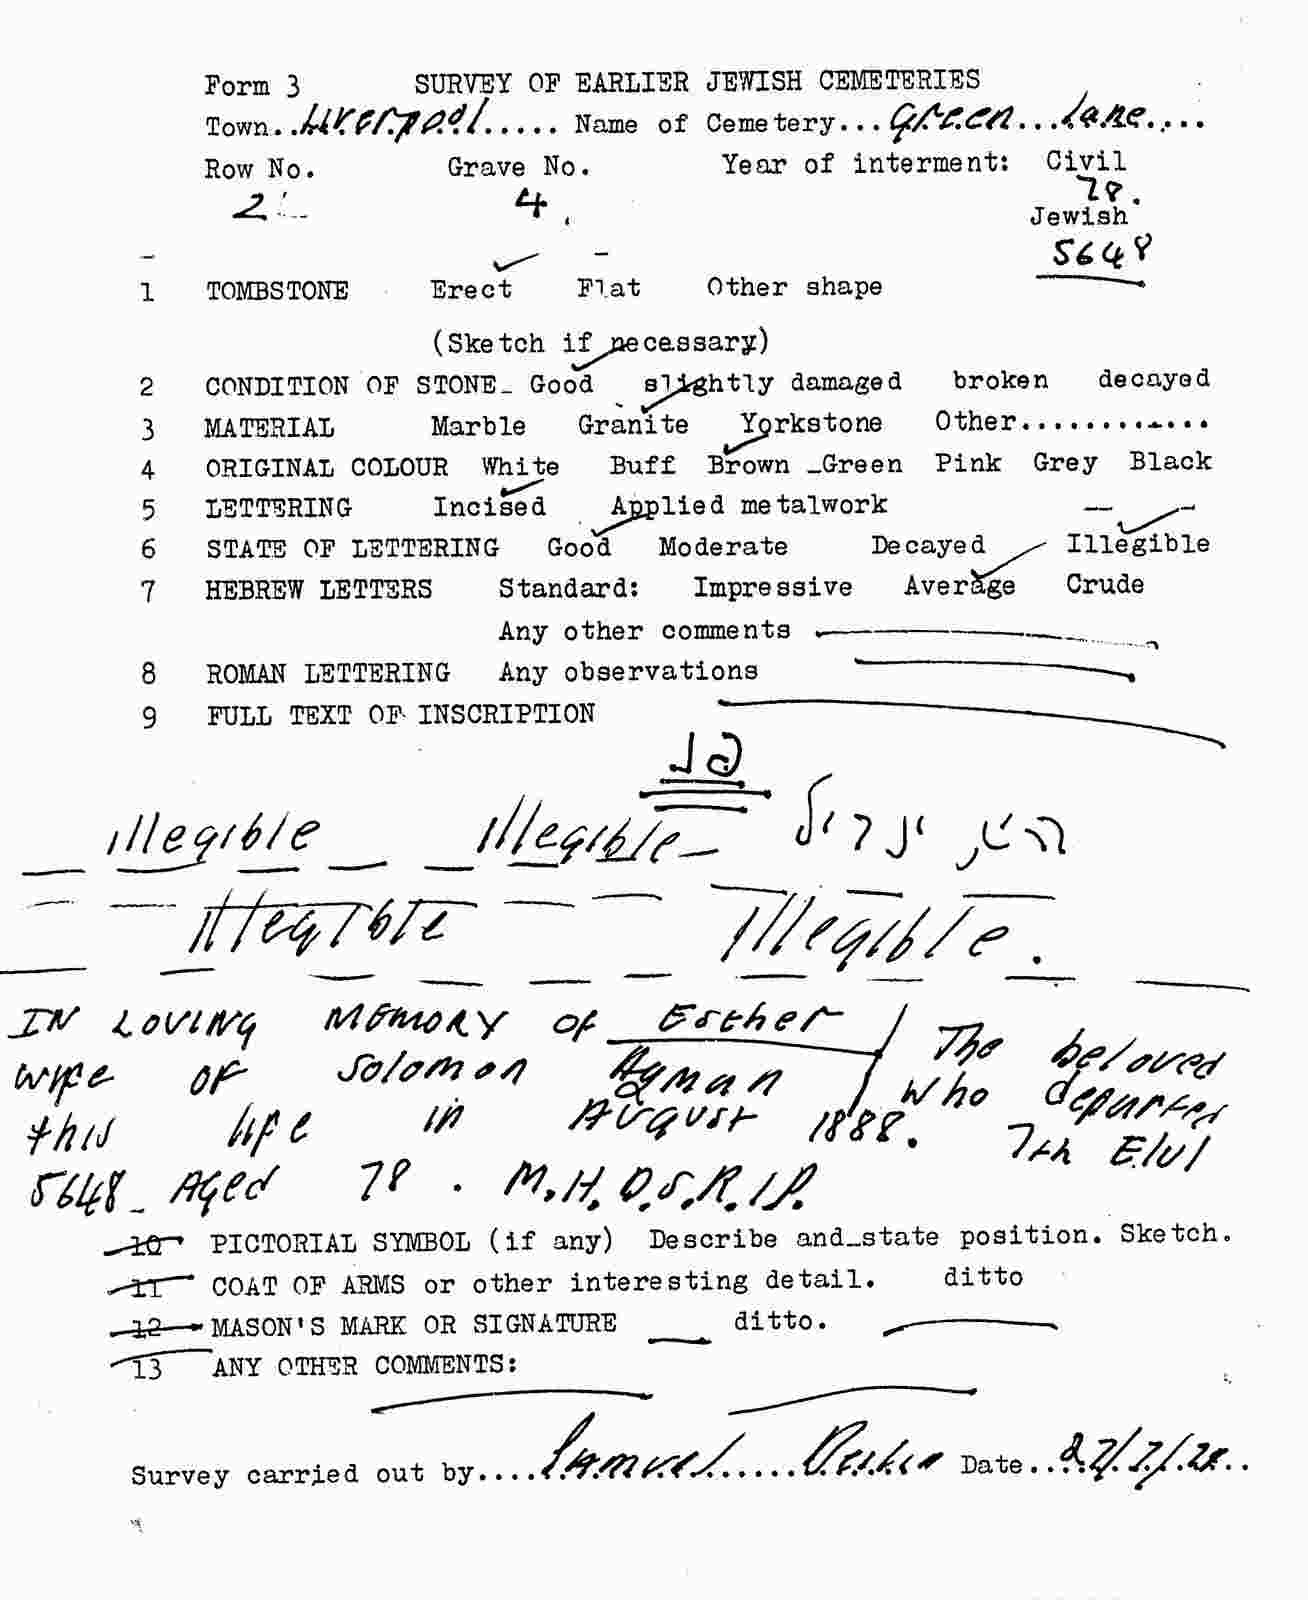 Form 3 SURVEY OF EARLIER JEWISH CEMETERIES
Town..Liverpool..... Name of Cemetery...Green...Lane....
Row No. Grave No. Year of interment: Civil
2 4 78.
Jewish
5648
1 TOMBSTONE Erect Flat Other shape
(Sketch if necessary)
2 CONDITION OF STONE_ Good slightly damaged broken decayed
3 MATERIAL Marble Granite Yorkstone Other............
4 ORIGINAL COLOUR White Buff Brown _Green Pink Grey Black
5 LETTERING Incised Applied metalwork
6 STATE OF LETTERING Good Moderate Decayed Illegible
7 HEBREW LETTERS Standard: Impressive Average Crude
Any other comments
8 ROMAN LETTERING Any observations
9 FULL TEXT OF INSCRIPTION
פנ
illegible illegible
Illegible Illegible.
IN LOVING MEMORY OF Esther / The beloved
wife OF Solomon Hyman / who departed
this life in August 1888. 7th Elul
5648_ Aged 78. M.H.D.S.R.I.P.
10 PICTORIAL SYMBOL (if any) Describe and_state position. Sketch.
11 COAT OF ARMS or other interesting detail. ditto
12 MASON'S MARK OR SIGNATURE ditto.
13 ANY OTHER COMMENTS:
Survey carried out by....Samuel..... Date..